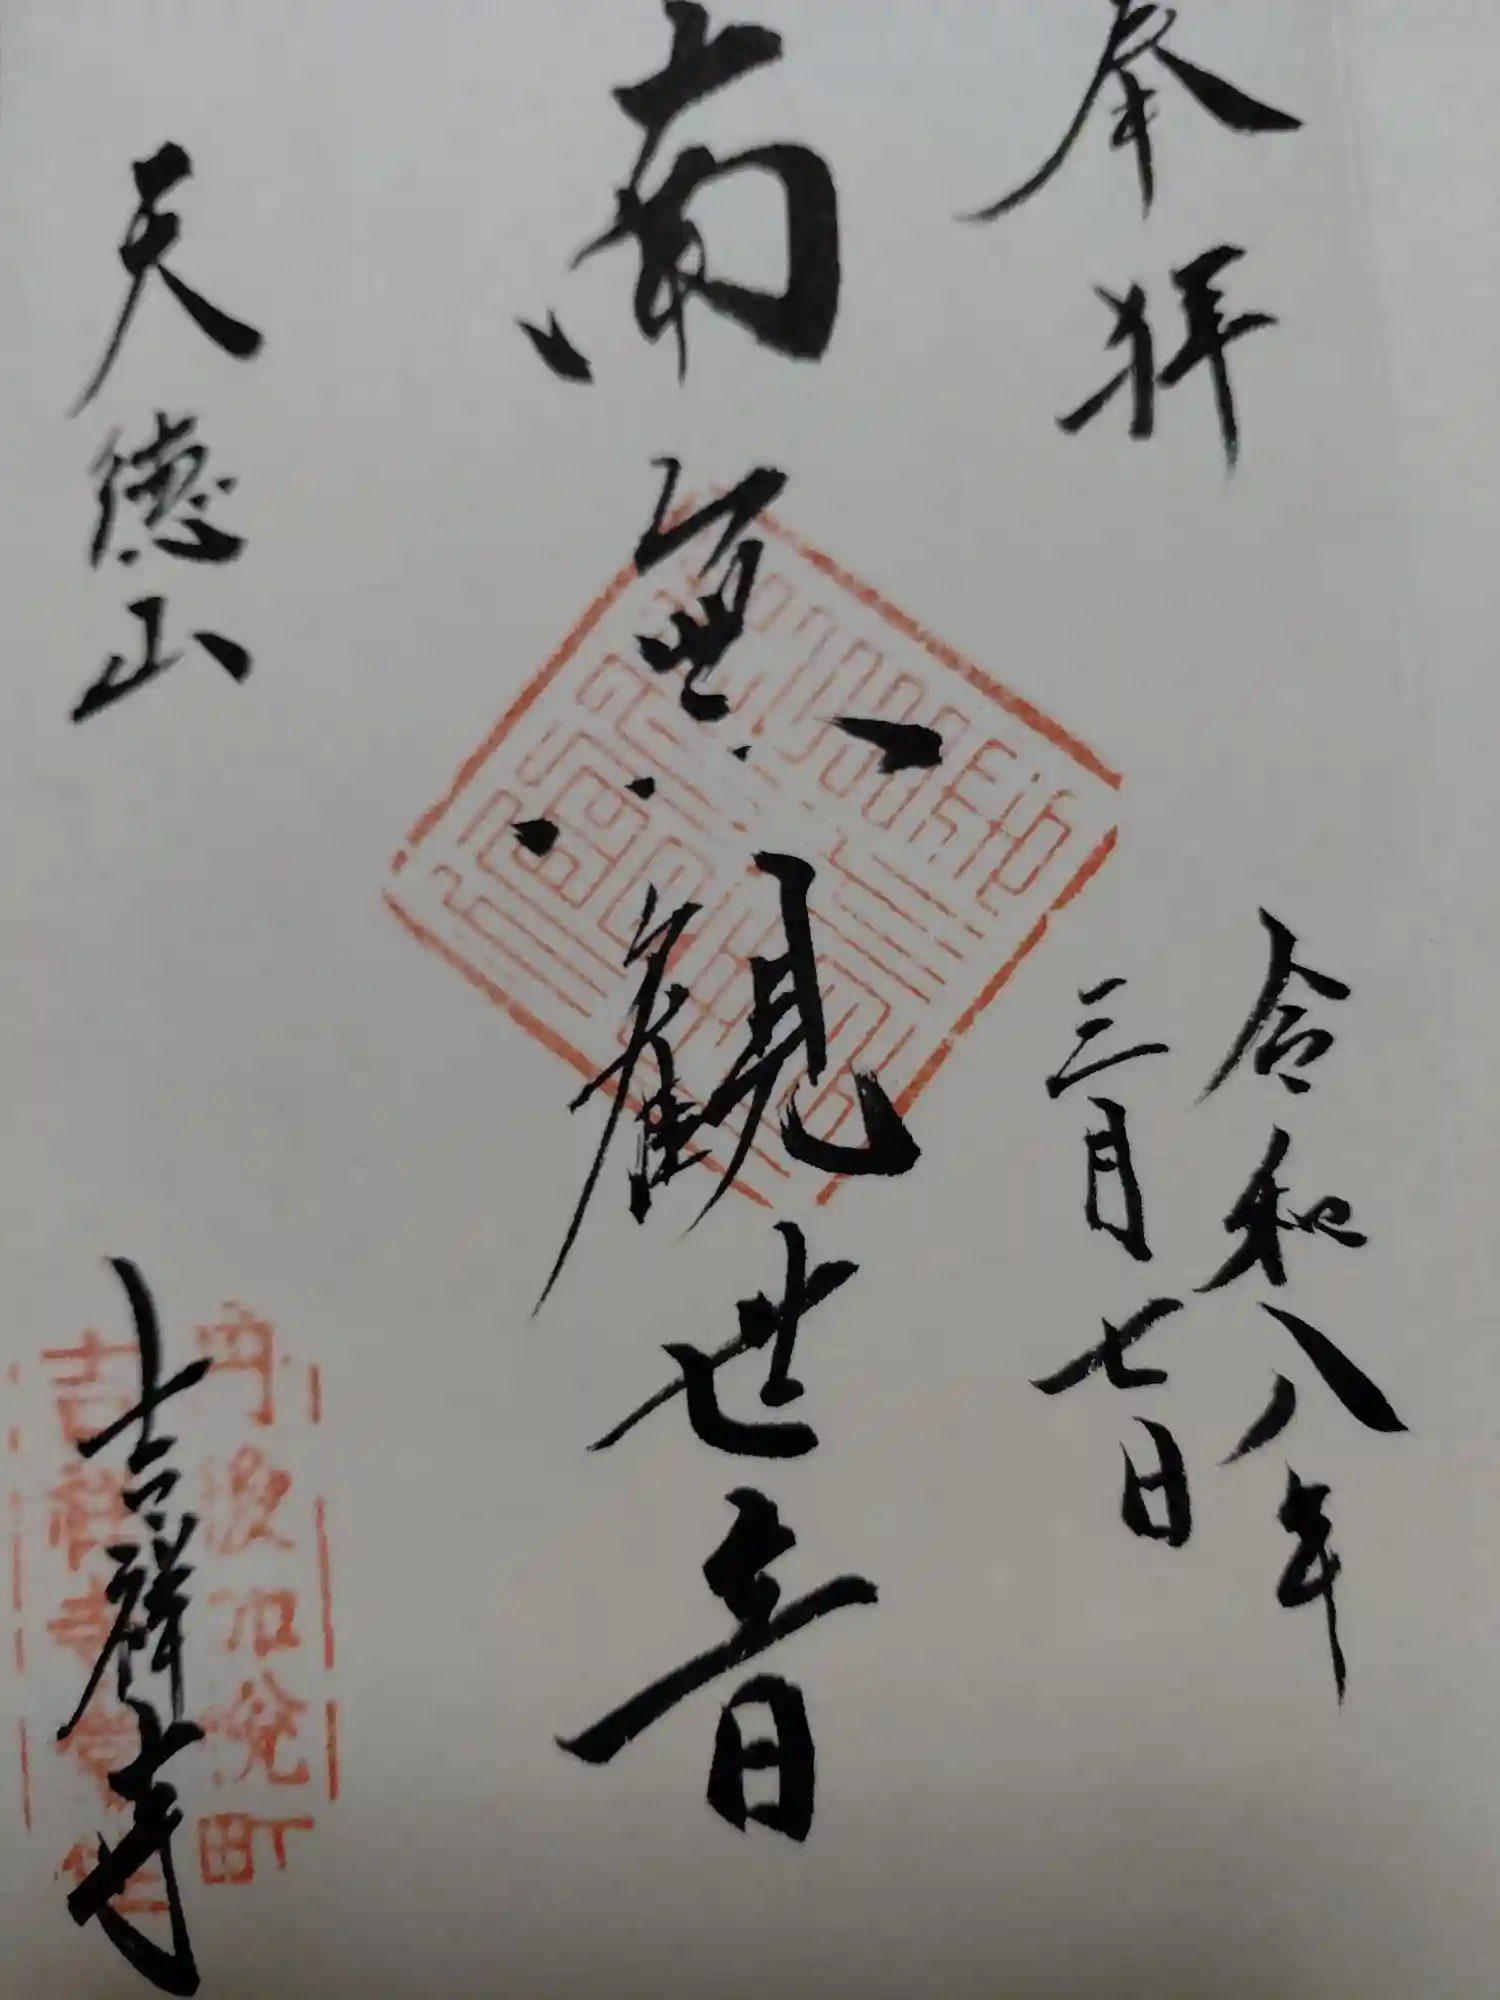 奉拝
令和八年
三月七日
南無観世音
天徳山
吉祥寺
丹波市
町
吉祥寺